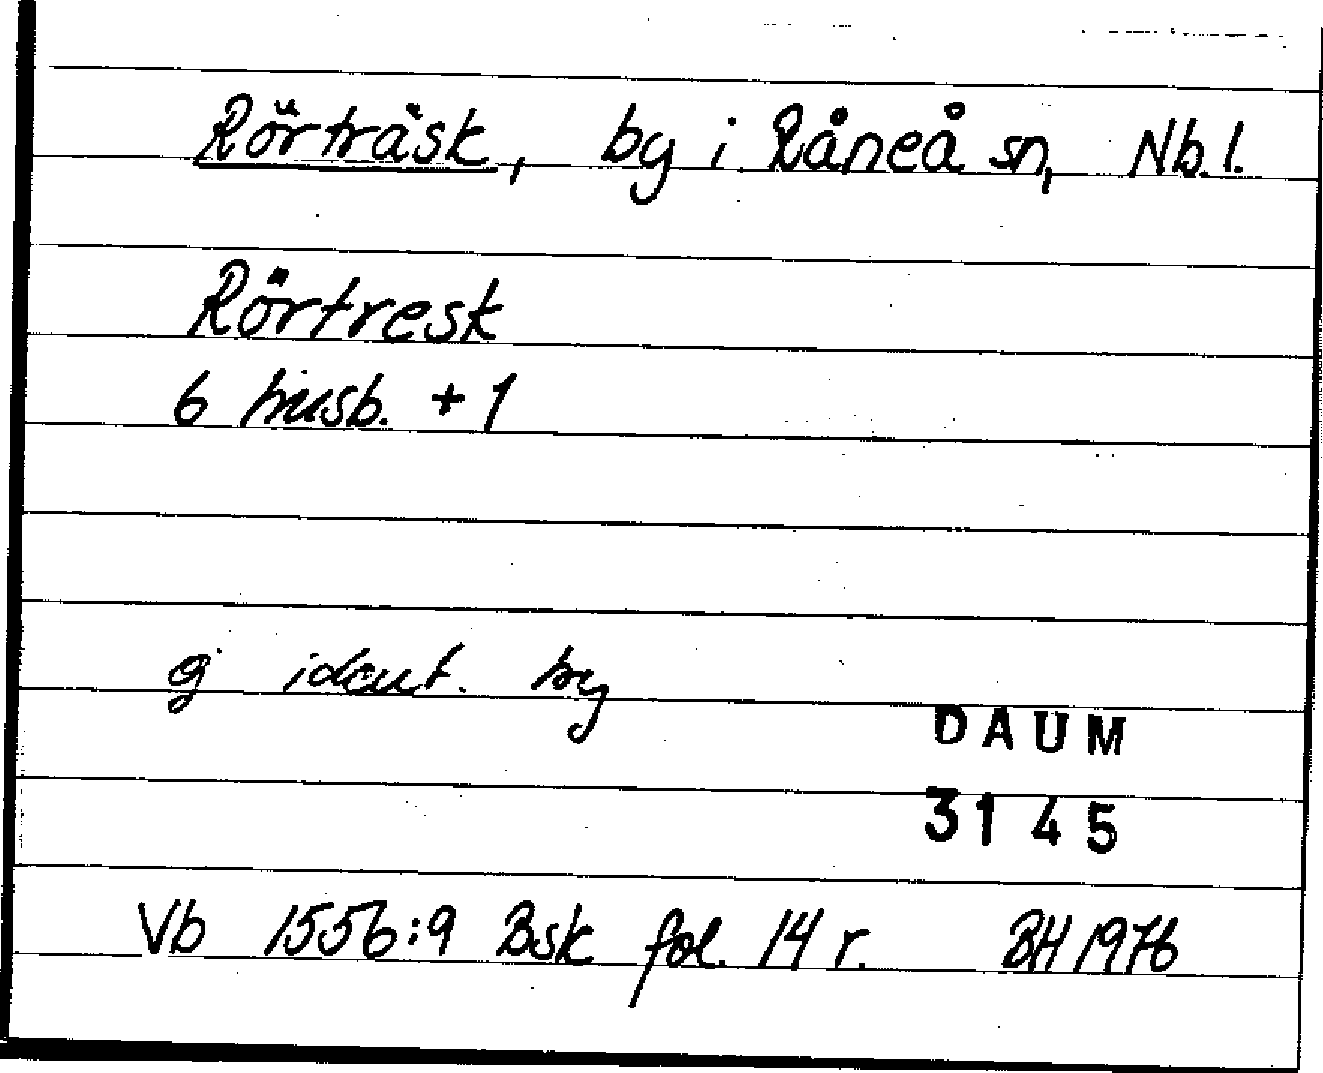 Rörträsk, by i Råneå sn, Nb. l.
Rörtresk
6 husb. + 1
ej ident. by
DAUM
3145
Vb 1556:9 Bsk fol. 14 r. BH 1976